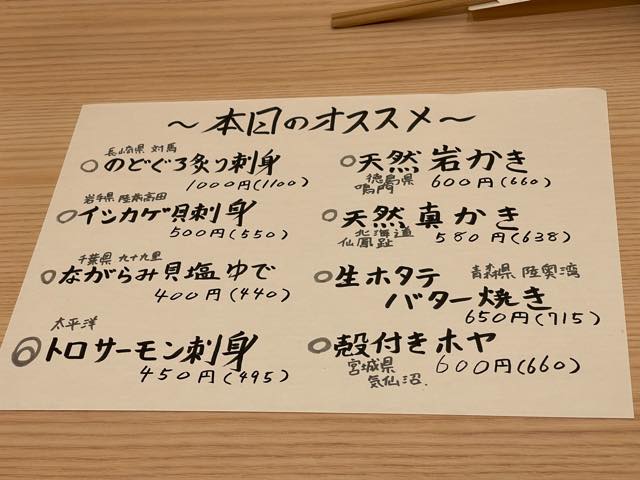 ～本日のオススメ～
長崎県 対馬
○のどぐろ炙り刺身
1000円(1100)
岩手県 陸前高田
○イシカゲ貝刺身
500円(550)
千葉県 九十九里
○ながらみ貝塩ゆで
400円(440)
太平洋
◎トロサーモン刺身
450円(495)
○天然 岩かき
徳島県
鳴門
600円(660)
○天然真かき
北海道
仙鳳趾
580円(638)
○生ホタテ 青森県 陸奥湾
バター焼き
650円(715)
○殻付きホヤ
宮城県
気仙沼.
600円(660)